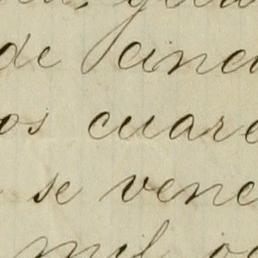 de cinc
os cuare
se venc
mil oc